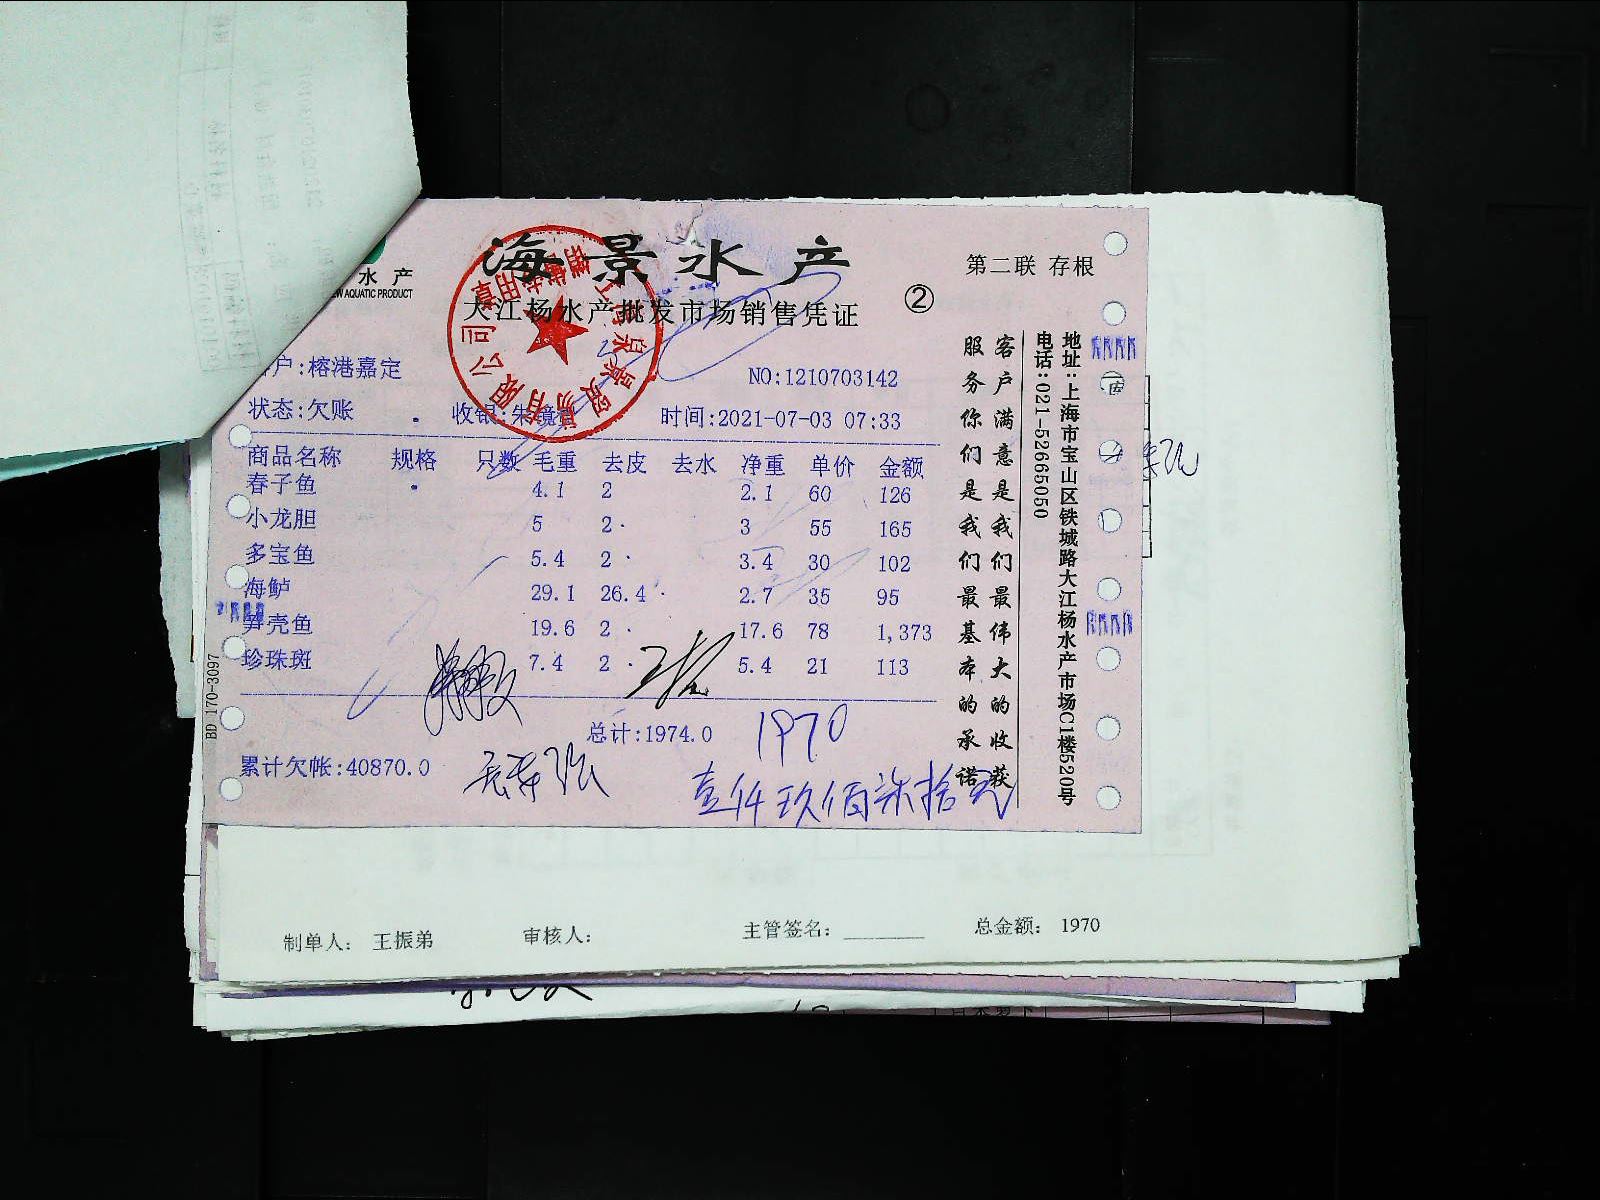 海景水产
水产
AQUATIC PRODUCT
大江杨水产批发市场销售凭证
②
第二联 存根
户:榕港嘉定
NO:1210703142
状态:欠账 收银:朱镜
时间:2021-07-03 07:33
商品名称 规格 只数 毛重 去皮 去水 净重 单价 金额
春子鱼 4.1 2 2.1 60 126
小龙胆 5 2 3 55 165
多宝鱼 5.4 2 3.4 30 102
海鲈 29.1 26.4 2.7 35 95
笋壳鱼 19.6 2 17.6 78 1,373
珍珠斑 7.4 2 5.4 21 113
总计:1974.0
1970
累计欠帐:40870.0
壹仟玖佰柒拾元
客户满意是我们最伟大的收获
服务你们是我们最基本的承诺
地址:上海市宝山区铁城路大江杨水产市场C1楼520号
电话:021-52665050
BD 170-3097
制单人: 王振弟 审核人: 主管签名: 总金额: 1970